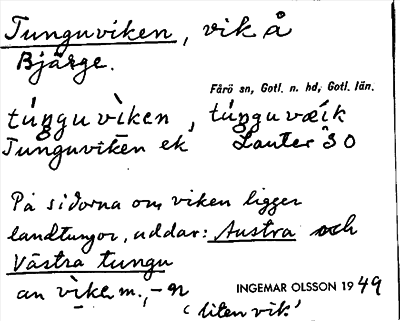 Tunguviken, vik å
Bjärge.
Fårö sn, Gotl. n. hd, Gotl. län.
túŋguvìken, túŋguvæík
Tunguviken ek Lauter SO
På sidorna om viken ligger
landtungor, uddar: Austra och
Västra tungu
an vìk m., -n
INGEMAR OLSSON 1949
'liten vik'